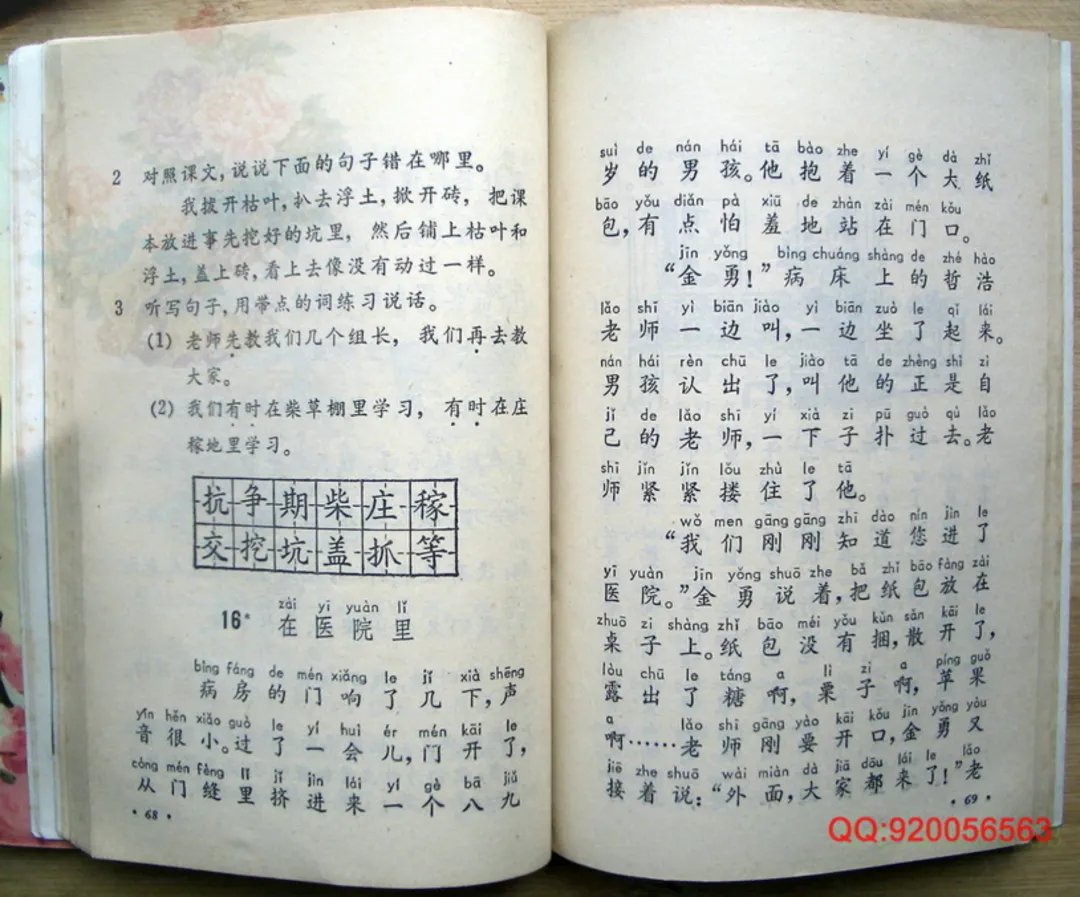 2 对照课文,说说下面的句子错在哪里。
我拨开枯叶,扒去浮土,掀开砖,把课
本放进事先挖好的坑里,然后铺上枯叶和
浮土,盖上砖,看上去像没有动过一样。
3 听写句子,用带点的词练习说话。
(1) 老师先教我们几个组长,我们再去教
大家。
(2) 我们有时在柴草棚里学习,有时在庄
稼地里学习。
抗争期柴庄稼
交挖坑盖抓等
zài yī yuàn lǐ
16* 在医院里
bìng fáng de mén xiǎng le jǐ xià shēng
病房的门响了几下,声
yīn hěn xiǎo guò le yí huì ér mén kāi le
音很小。过了一会儿,门开了,
cóng mén fèng lǐ jǐ jìn lái yí gè bā jiǔ
从门缝里挤进来一个八九
·68·
suì de nán hái tā bào zhe yí gè dà zhǐ
岁的男孩。他抱着一个大纸
bāo yǒu diǎn pà xiū de zhàn zài mén kǒu
包,有点怕羞地站在门口。
jīn yǒng bìng chuáng shàng de zhé hào
“金勇!”病床上的哲浩
lǎo shī yì biān jiào yì biān zuò le qǐ lái
老师一边叫,一边坐了起来。
nán hái rèn chū le jiào tā de zhèng shì zì
男孩认出了,叫他的正是自
jǐ de lǎo shī yí xià zi pū guò qù lǎo
己的老师,一下子扑过去。老
shī jǐn jǐn lǒu zhù le tā
师紧紧搂住了他。
wǒ men gāng gāng zhī dào nín jìn le
“我们刚刚知道您进了
yī yuàn jīn yǒng shuō zhe bǎ zhǐ bāo fàng zài
医院。”金勇说着,把纸包放在
zhuō zi shàng zhǐ bāo méi yǒu kǔn sǎn kāi le
桌子上。纸包没有捆,散开了,
lòu chū le táng a lì zi a píng guǒ
露出了糖啊,栗子啊,苹果
a lǎo shī gāng yào kāi kǒu jīn yǒng yòu
啊……老师刚要开口,金勇又
jiē zhe shuō wài miàn dà jiā dōu lái le lǎo
接着说:“外面,大家都来了!”老
·69·
QQ:920056563